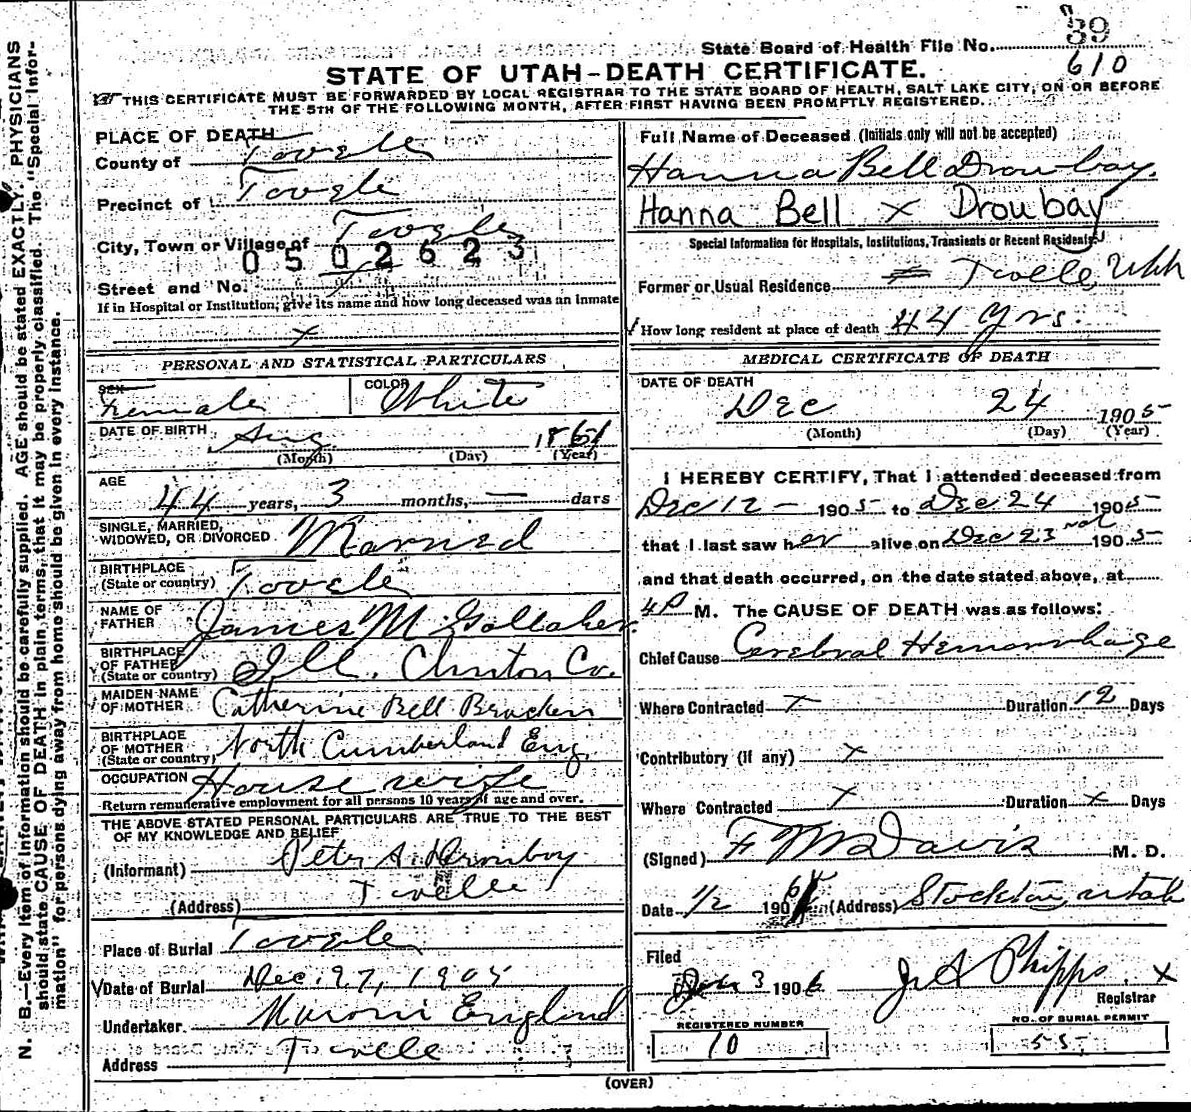 State Board of Health File No. 59
610
STATE OF UTAH-DEATH CERTIFICATE.
THIS CERTIFICATE MUST BE FORWARDED BY LOCAL REGISTRAR TO THE STATE BOARD OF HEALTH, SALT LAKE CITY, ON OR BEFORE
THE 5TH OF THE FOLLOWING MONTH, AFTER FIRST HAVING BEEN PROMPTLY REGISTERED.
PLACE OF DEATH
County of Tooele
Precinct of Tooele
City, Town or Village of Tooele
0502623
Street and No.
If in Hospital or Institution, give its name and how long deceased was an inmate
x
PERSONAL AND STATISTICAL PARTICULARS
SEX Female COLOR White
DATE OF BIRTH Aug 1861
(Month) (Day) (Year)
AGE
44 years, 3 months, — days
SINGLE, MARRIED,
WIDOWED, OR DIVORCED Married
BIRTHPLACE
(State or country) Tooele
NAME OF
FATHER James M. Gollaher
BIRTHPLACE
OF FATHER
(State or country) Ill. Clinton Co.
MAIDEN NAME
OF MOTHER Catherine Bell Bracken
BIRTHPLACE
OF MOTHER
(State or country) North Cumberland Eng.
OCCUPATION House wife
Return remunerative employment for all persons 10 years of age and over.
THE ABOVE STATED PERSONAL PARTICULARS ARE TRUE TO THE BEST
OF MY KNOWLEDGE AND BELIEF
(Informant) Peter A. Droubay
(Address) Tooele
Place of Burial Tooele
Date of Burial Dec. 27, 1905
Undertaker Moroni England
Address Tooele
Full Name of Deceased (Initials only will not be accepted)
Hanna Bell Droubay.
Hanna Bell x Droubay
Special Information for Hospitals, Institutions, Transients or Recent Residents
Former or Usual Residence Tooele, Utah
How long resident at place of death 44 yrs.
MEDICAL CERTIFICATE OF DEATH
DATE OF DEATH
Dec 24 1905
(Month) (Day) (Year)
I HEREBY CERTIFY, That I attended deceased from
Dec 12 - 1905 to Dec 24 1905
that I last saw her alive on Dec 23 1905
and that death occurred, on the date stated above, at
4 P M. The CAUSE OF DEATH was as follows:
Chief Cause Cerebral Hemorrhage
Where Contracted x Duration 12 Days
Contributory (if any) x
Where Contracted x Duration x Days
(Signed) F M Davis M. D.
Date 1/2 1906 (Address) Stockton, Utah
Filed
Jan 3 1906 Phipps x
Registrar
REGISTERED NUMBER
10
NO. OF BURIAL PERMIT
55
(OVER)
N. B.—Every item of information should be carefully supplied. AGE should be stated EXACTLY. PHYSICIANS
should state CAUSE OF DEATH in plain terms, that it may be properly classified. The "Special Infor-
mation" for persons dying away from home should be given in every instance.